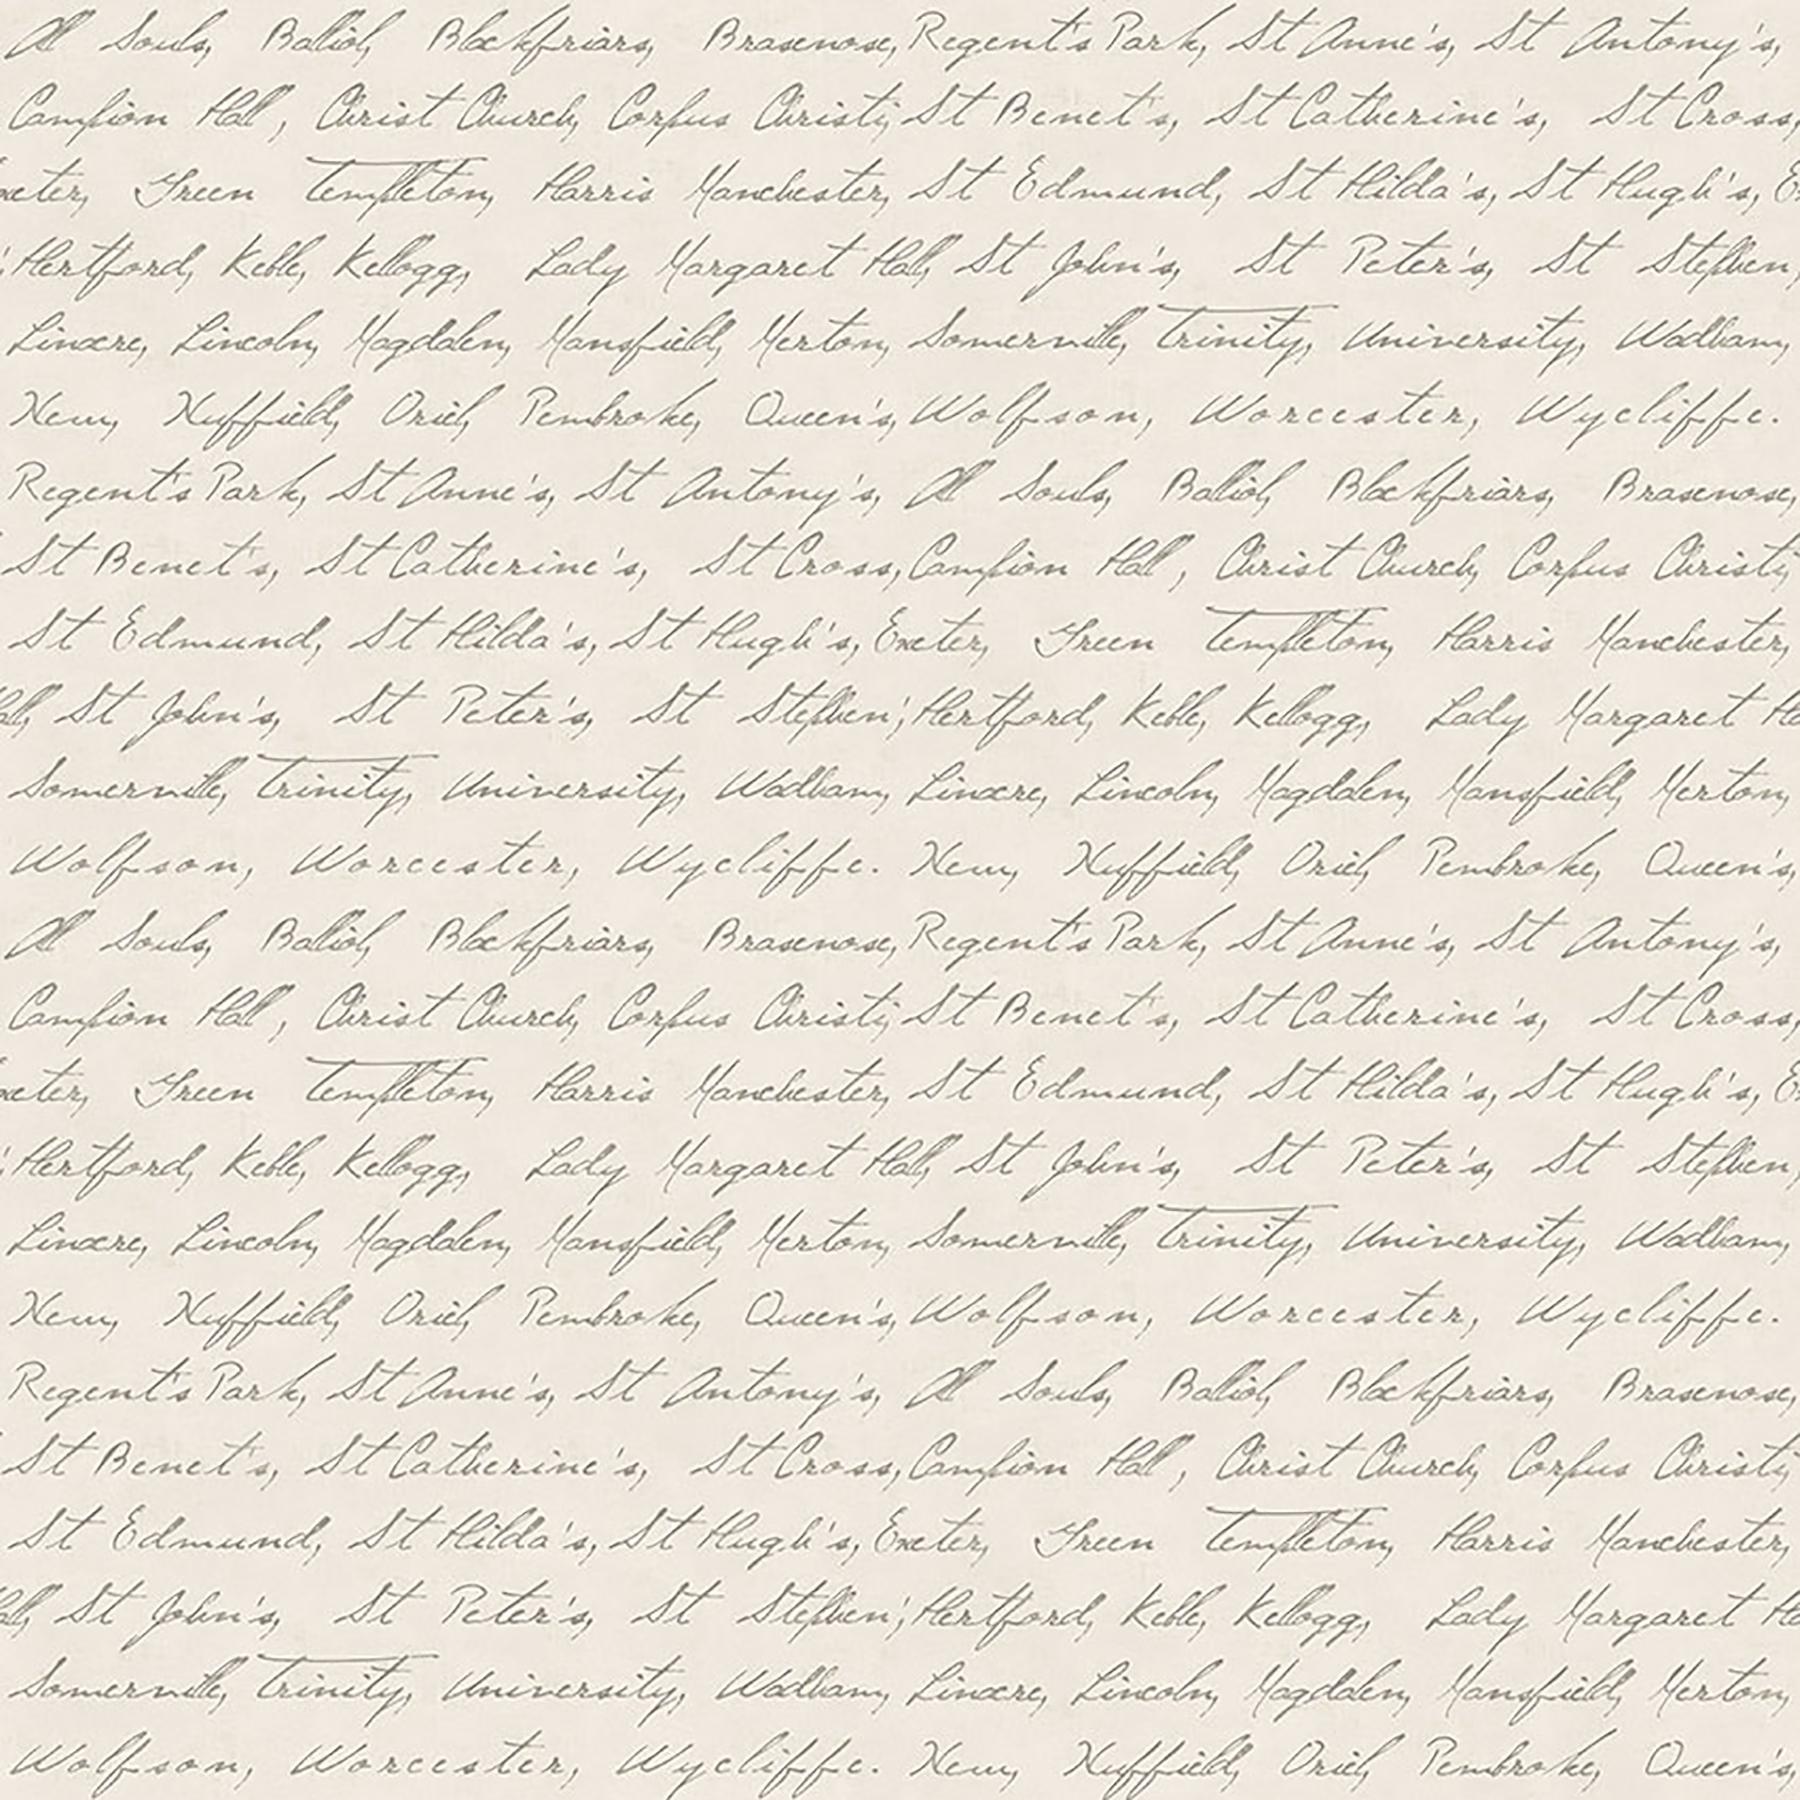 All Souls, Balliol, Blackfriars, Brasenose, Regent's Park, St Anne's, St Antony's,
Campion Hall, Christ Church, Corpus Christi, St Benet's, St Catherine's, St Cross,
xeter, Green Templeton, Harris Manchester, St Edmund, St Hilda's, St Hugh's, Ex
Hertford, Keble, Kellogg, Lady Margaret Hall, St John's, St Peter's, St Stephen,
Linacre, Lincoln, Magdalen, Mansfield, Merton, Somerville, Trinity, University, Wadham,
New, Nuffield, Oriel, Pembroke, Queen's, Wolfson, Worcester, Wycliffe.
Regent's Park, St Anne's, St Antony's, All Souls, Balliol, Blackfriars, Brasenose,
St Benet's, St Catherine's, St Cross, Campion Hall, Christ Church, Corpus Christi,
St Edmund, St Hilda's, St Hugh's, Exeter, Green Templeton, Harris Manchester,
all, St John's, St Peter's, St Stephen', Hertford, Keble, Kellogg, Lady Margaret Ha
Somerville, Trinity, University, Wadham, Linacre, Lincoln, Magdalen, Mansfield, Merton,
Wolfson, Worcester, Wycliffe. New, Nuffield, Oriel, Pembroke, Queen's,
All Souls, Balliol, Blackfriars, Brasenose, Regent's Park, St Anne's, St Antony's,
Campion Hall, Christ Church, Corpus Christi, St Benet's, St Catherine's, St Cross,
xeter, Green Templeton, Harris Manchester, St Edmund, St Hilda's, St Hugh's, Ex
Hertford, Keble, Kellogg, Lady Margaret Hall, St John's, St Peter's, St Stephen,
Linacre, Lincoln, Magdalen, Mansfield, Merton, Somerville, Trinity, University, Wadham,
New, Nuffield, Oriel, Pembroke, Queen's, Wolfson, Worcester, Wycliffe.
Regent's Park, St Anne's, St Antony's, All Souls, Balliol, Blackfriars, Brasenose,
St Benet's, St Catherine's, St Cross, Campion Hall, Christ Church, Corpus Christi,
St Edmund, St Hilda's, St Hugh's, Exeter, Green Templeton, Harris Manchester,
all, St John's, St Peter's, St Stephen', Hertford, Keble, Kellogg, Lady Margaret Ha
Somerville, Trinity, University, Wadham, Linacre, Lincoln, Magdalen, Mansfield, Merton,
Wolfson, Worcester, Wycliffe. New, Nuffield, Oriel, Pembroke, Queen's,